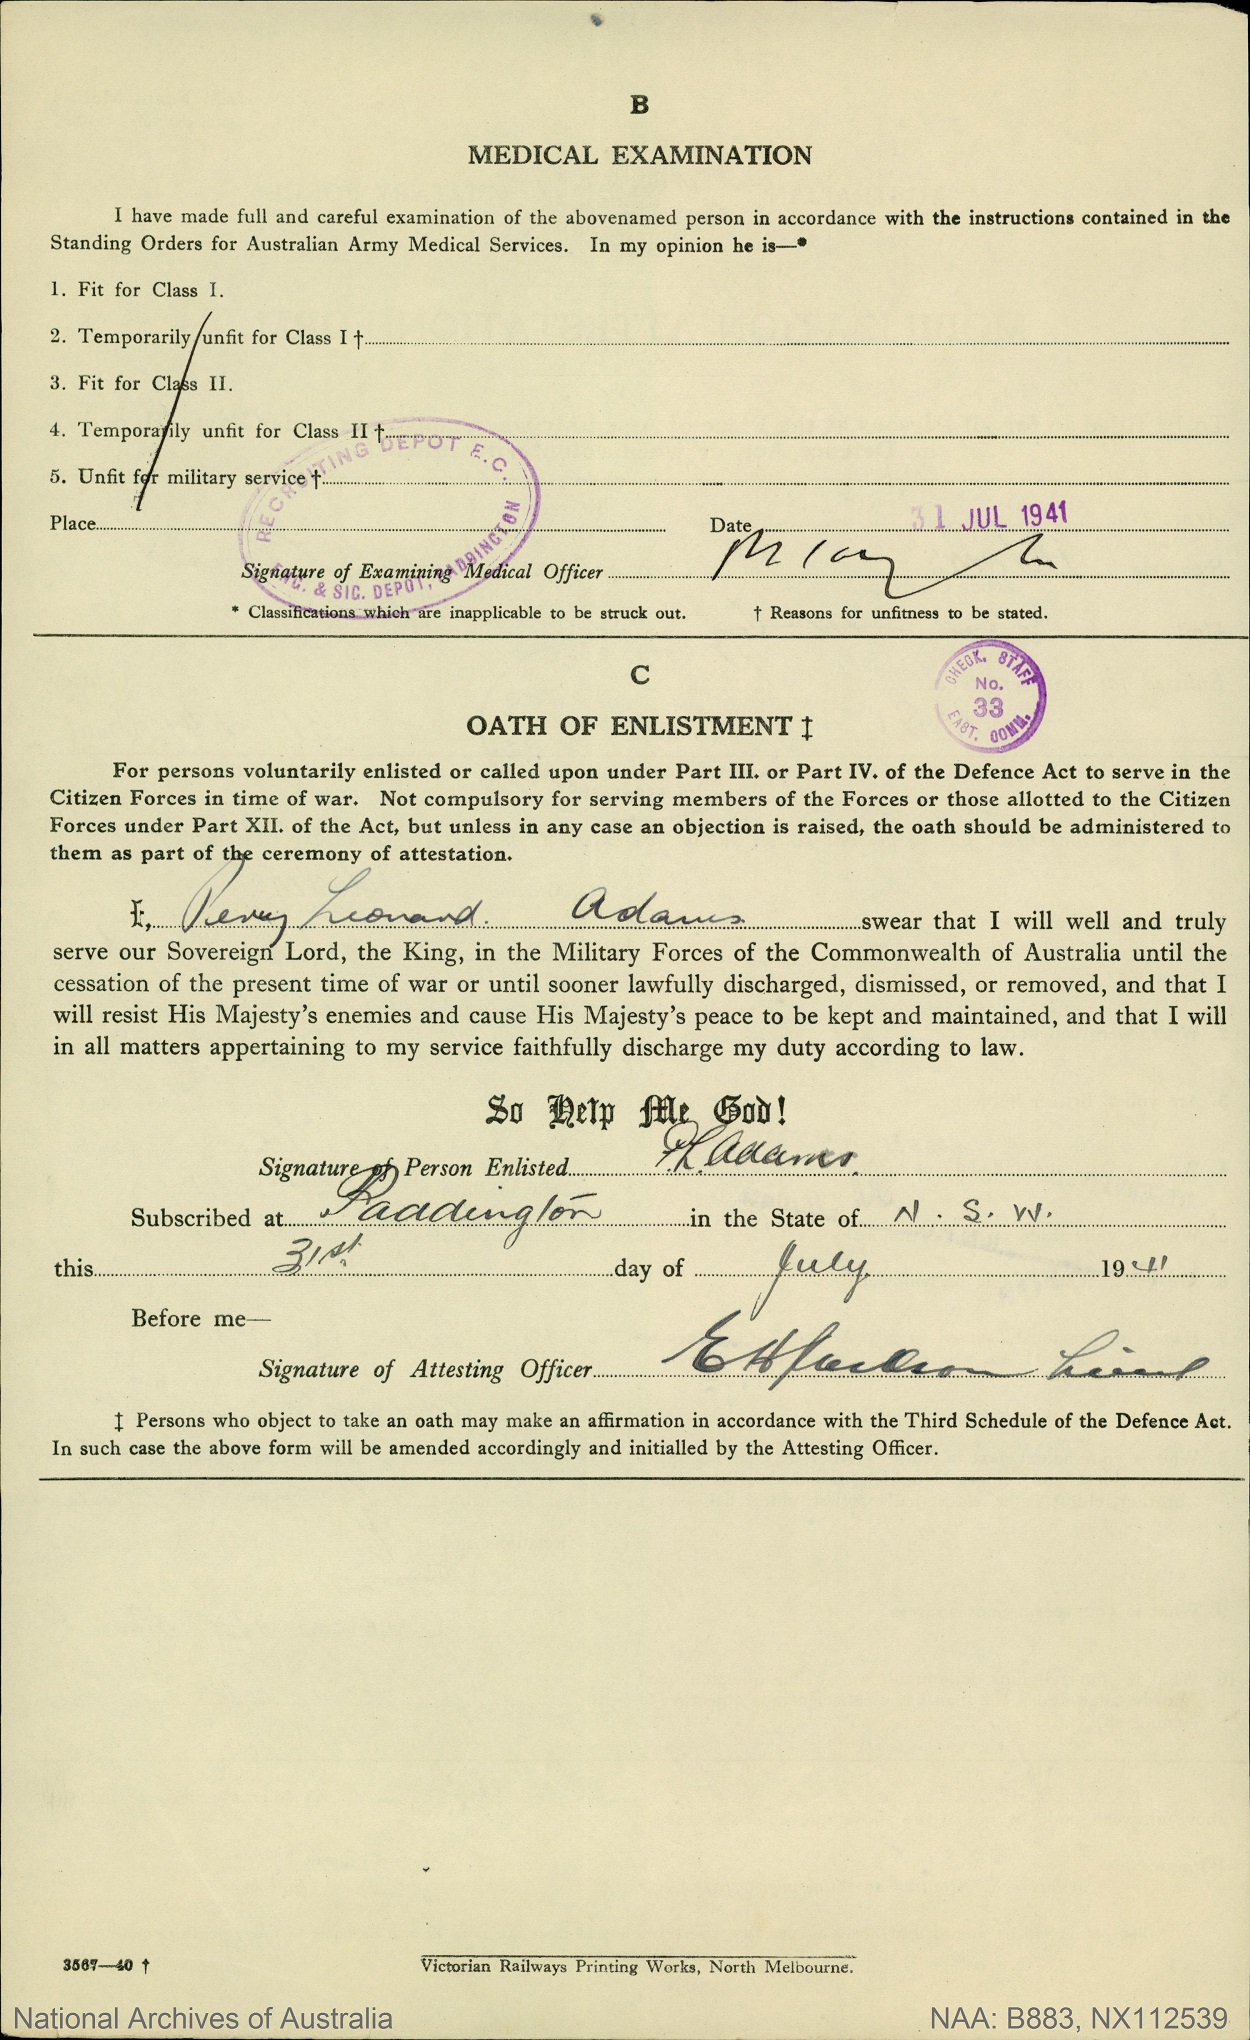 B
MEDICAL EXAMINATION
I have made full and careful examination of the abovenamed person in accordance with the instructions contained in the
Standing Orders for Australian Army Medical Services. In my opinion he is—*
1. Fit for Class I.
2. Temporarily unfit for Class I †
3. Fit for Class II.
4. Temporarily unfit for Class II †
5. Unfit for military service †
RECRUITING DEPOT E.C.
ENG. & SIG. DEPOT, PADDINGTON
Place Date 31 JUL 1941
Signature of Examining Medical Officer
* Classifications which are inapplicable to be struck out. † Reasons for unfitness to be stated.
CHECK. STAFF
No.
33
EAST. COMM.
C
OATH OF ENLISTMENT ‡
For persons voluntarily enlisted or called upon under Part III. or Part IV. of the Defence Act to serve in the
Citizen Forces in time of war. Not compulsory for serving members of the Forces or those allotted to the Citizen
Forces under Part XII. of the Act, but unless in any case an objection is raised, the oath should be administered to
them as part of the ceremony of attestation.
I, Percy Leonard. Adams swear that I will well and truly
serve our Sovereign Lord, the King, in the Military Forces of the Commonwealth of Australia until the
cessation of the present time of war or until sooner lawfully discharged, dismissed, or removed, and that I
will resist His Majesty's enemies and cause His Majesty's peace to be kept and maintained, and that I will
in all matters appertaining to my service faithfully discharge my duty according to law.
So Help Me God!
Signature of Person Enlisted P.L. Adams.
Subscribed at Paddington in the State of N. S. W.
this 31st day of July. 1941
Before me—
Signature of Attesting Officer E H Jackson Lieut
‡ Persons who object to take an oath may make an affirmation in accordance with the Third Schedule of the Defence Act.
In such case the above form will be amended accordingly and initialled by the Attesting Officer.
3567—40 † Victorian Railways Printing Works, North Melbourne.
National Archives of Australia NAA: B883, NX112539